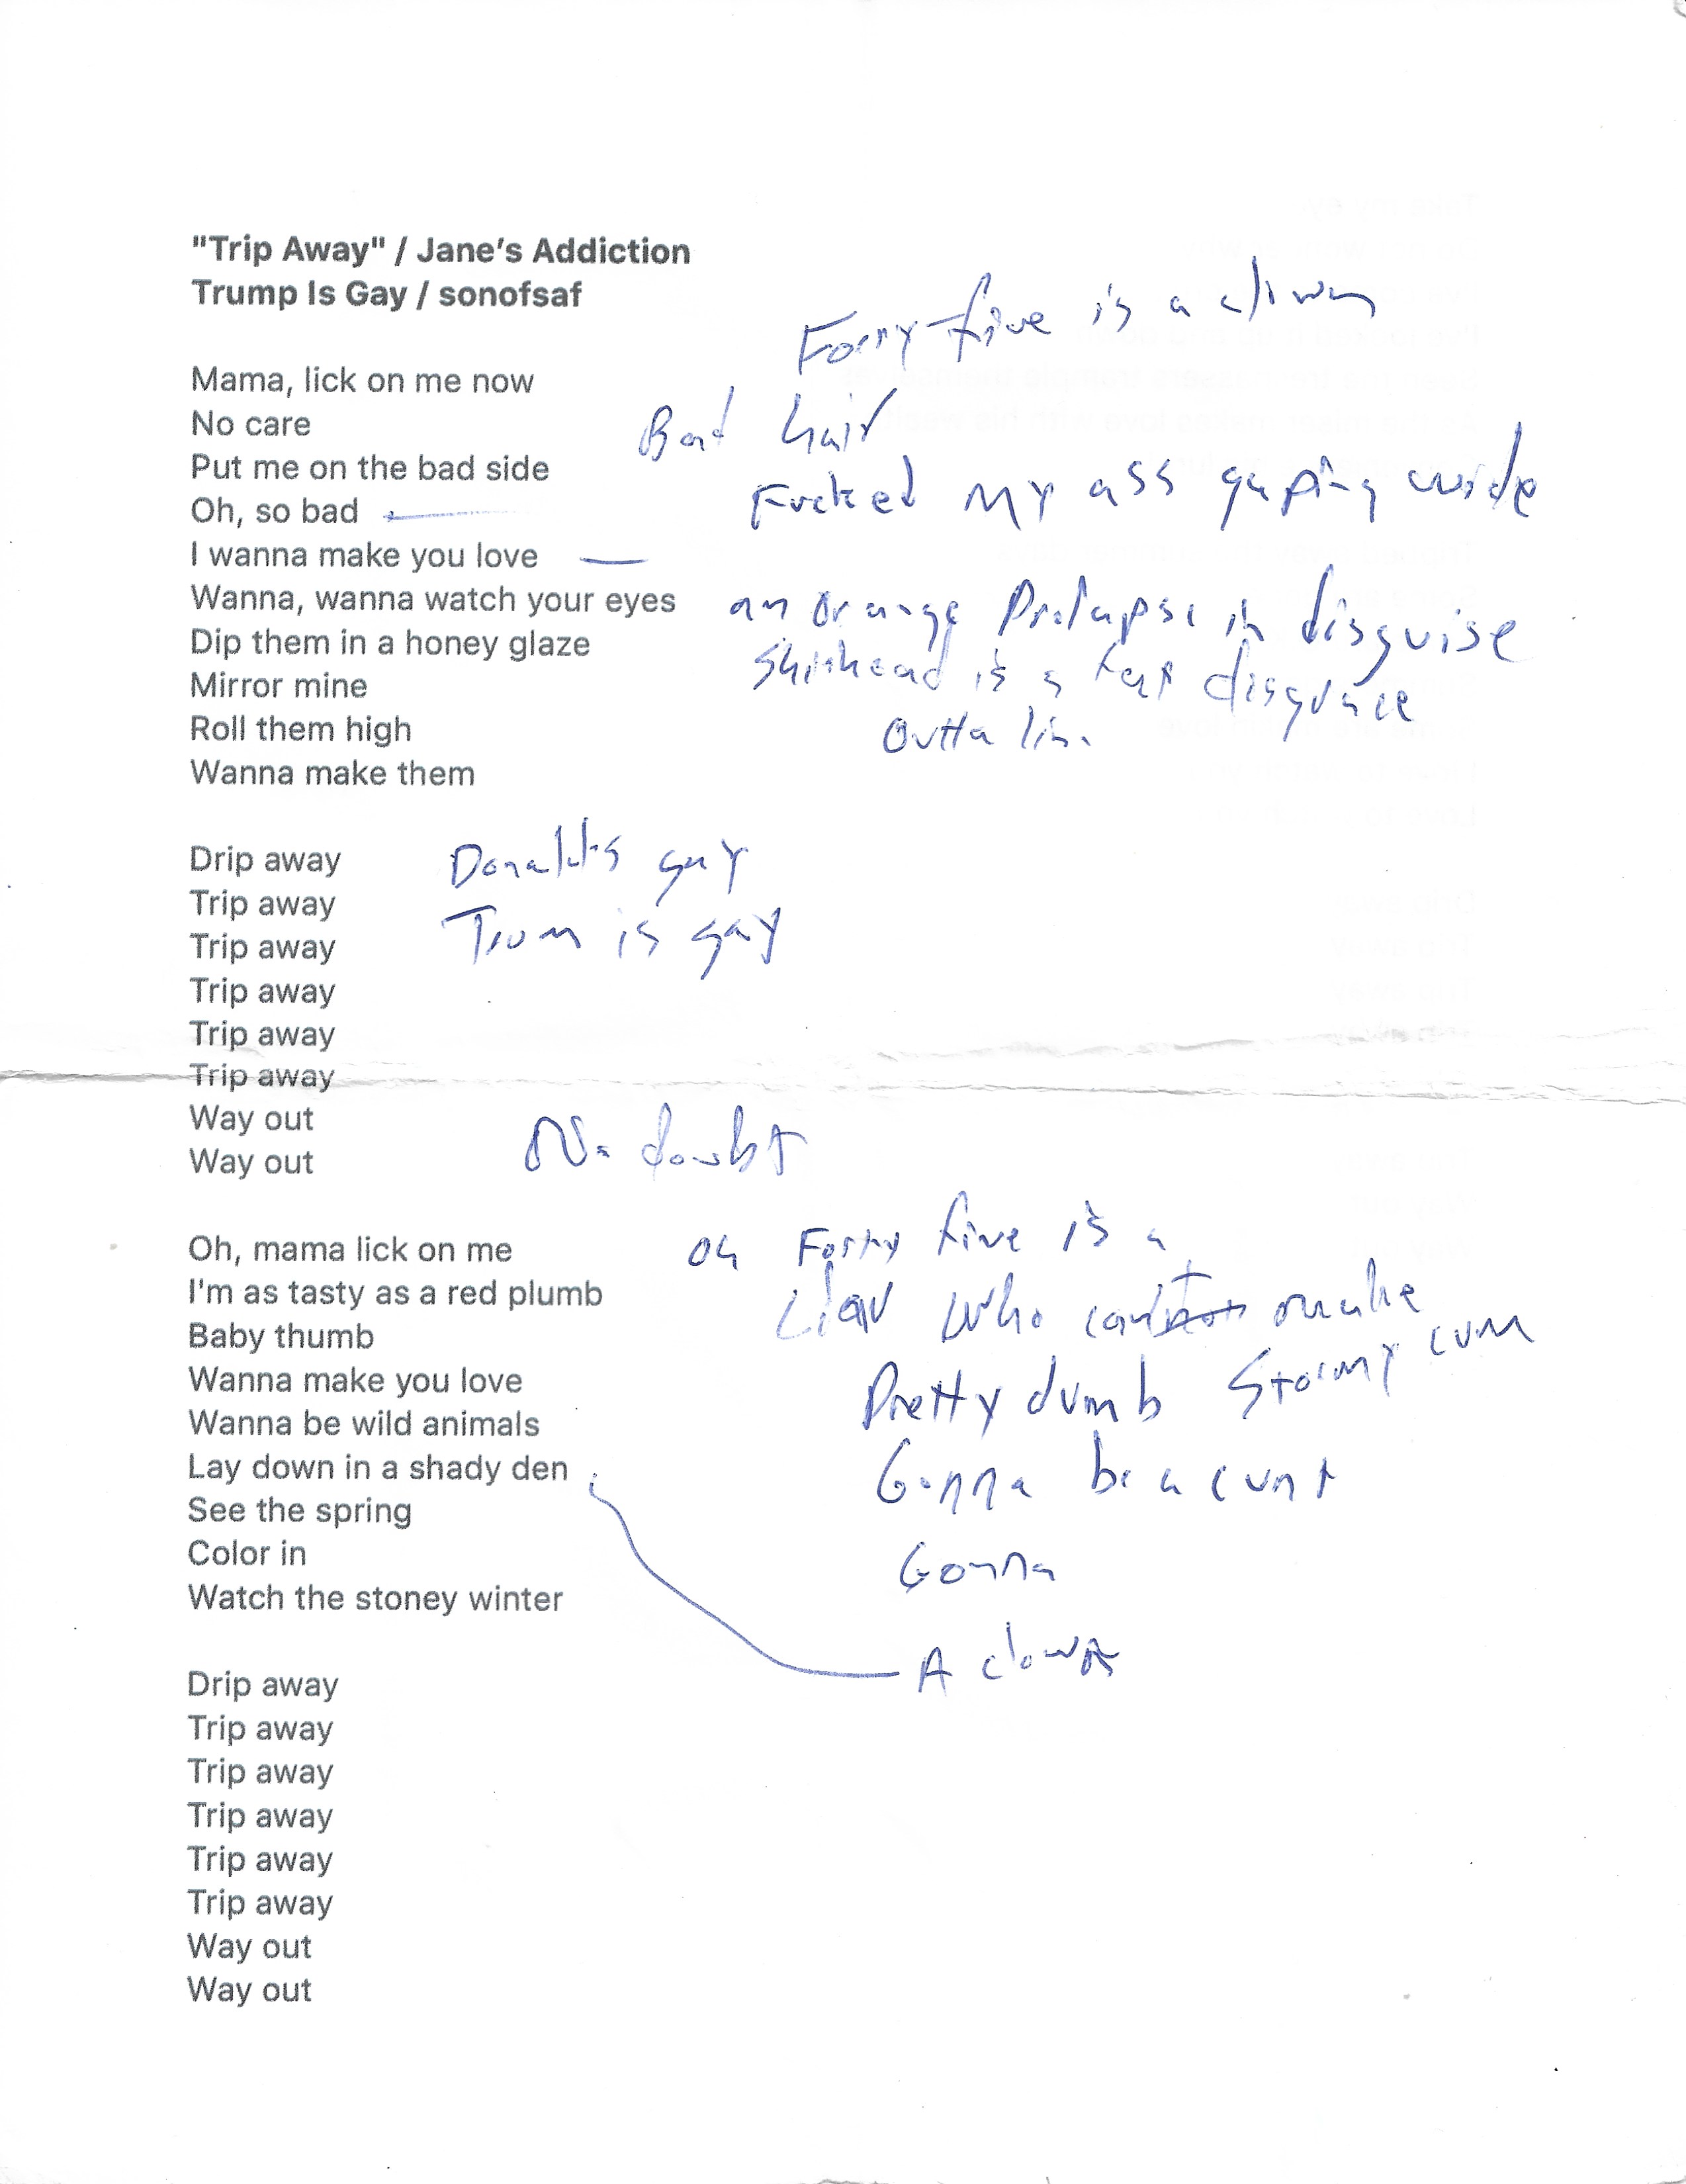 "Trip Away" / Jane's Addiction
Trump Is Gay / sonofsaf
Forry-five is a clown
Mama, lick on me now
No care
Bad hair
Put me on the bad side
Fucked my ass gaping wide
Oh, so bad
I wanna make you love
Wanna, wanna watch your eyes
an orange Prolapse in disguise
Dip them in a honey glaze
Shithead is a fat disgrace
Mirror mine
Outta line
Roll them high
Wanna make them
Drip away
Donald's gay
Trip away
Trum is gay
Trip away
Trip away
Trip away
Trip away
Way out
No doubt
Way out
Oh, mama lick on me
oh Forty five is a
I'm as tasty as a red plumb
Liar who can't make
Stormy cum
Baby thumb
Pretty dumb
Wanna make you love
Wanna be wild animals
Gonna be a cunt
Lay down in a shady den
See the spring
Color in
Gonna
Watch the stoney winter
A clown
Drip away
Trip away
Trip away
Trip away
Trip away
Trip away
Way out
Way out